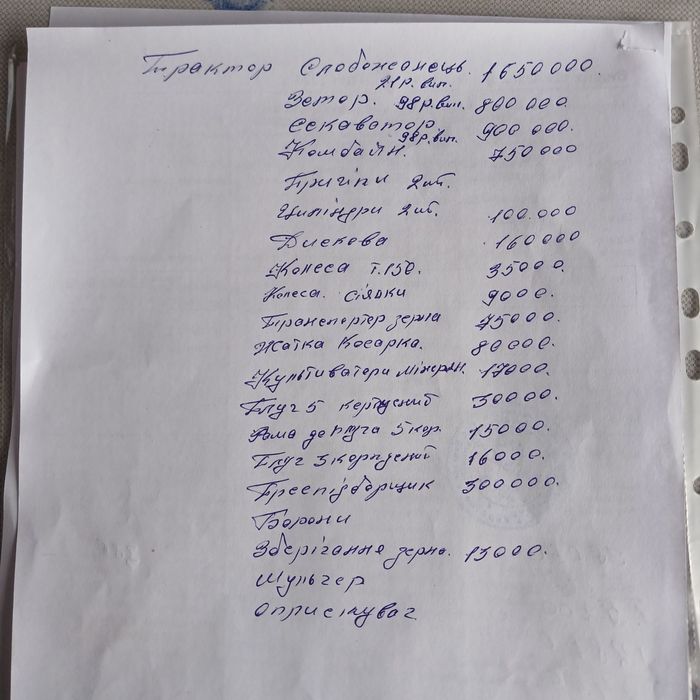 Трактор Слобожанець. 1650000.
21р. вип.
Зетор. 98р.вип. 800 000.
Екскаватор 900 000.
98р.вип.
Комбайн. 750 000
Причіпи 2шт.
Циліндри 2шт. 100.000
Дискова 160000
Колеса Т.150. 35000.
Колеса. сіялки 9000.
Транспортер зерна 75000.
Жатка Косарка. 80000.
Культиватори мінерал. 17000.
Плуг 5 корпусний 30000.
Рама до плуга 5кор. 15000.
Плуг 3 корпусний 16000.
Преспідборщик 300000.
Борони
Зберігання зерна. 15000.
Мульчер
Оприскувач